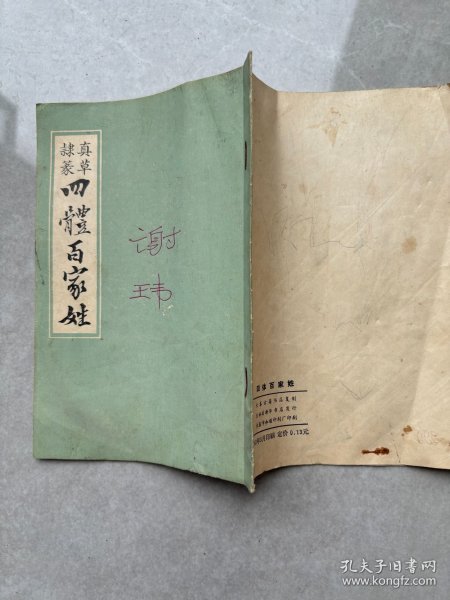 真草
隶篆
四體百家姓
谢
玮
四体百家姓
定价0.13元
孔夫子旧书网
www.kongfz.com